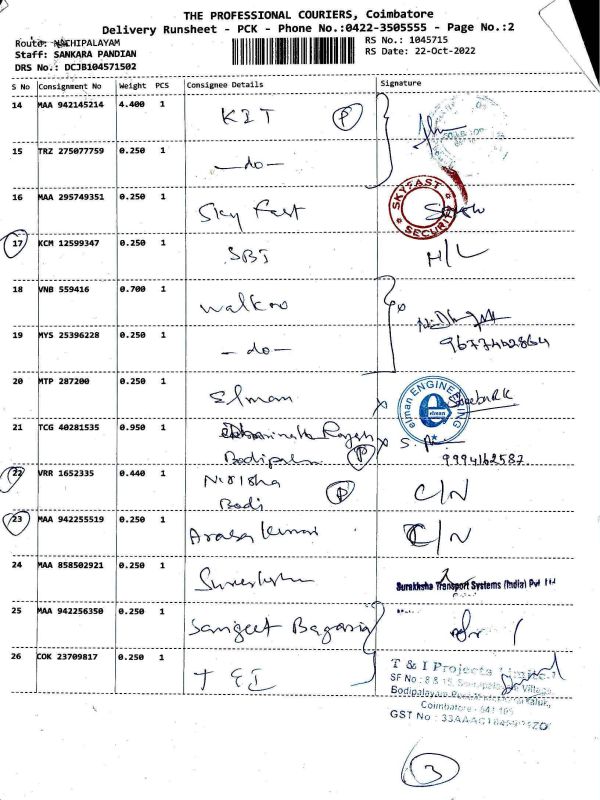 THE PROFESSIONAL COURIERS, Coimbatore
Delivery Runsheet - PCK - Phone No.:0422-3505555 - Page No.:2
Route: NACHIPALAYAM
RS No.: 1045715
Staff: SANKARA PANDIAN
RS Date: 22-Oct-2022
DRS No.: DCJB104571502
S No Consignment No Weight PCS Consignee Details Signature
14 MAA 942145214 4.400 1 KIT P
15 TRZ 275077759 0.250 1 -do-
16 MAA 295749351 0.250 1 Sky Fast SKYFAST SECURITY
17 KCM 12599347 0.250 1 SBI H/L
18 VNB 559416 0.700 1 Walkroo
19 MYS 25396228 0.250 1 -do-
20 MTP 287200 0.250 1 Elman elman ENGINEERING
21 TCG 40281535 0.950 1
P
9994162587
22 VRR 1652335 0.440 1 P C/N
Bodi
23 MAA 942255519 0.250 1 Arasa Kumar C/N
24 MAA 858502921 0.250 1 Surakhsha Transport Systems (India) Pvt Ltd
25 MAA 942256350 0.250 1 Sangeet Bagaria
26 COK 23709817 0.250 1 T & I
T & I Projects Limited
SF No : 8 & 15, Village,
Bodipalayam
Coimbatore - 641 105
GST No :
3